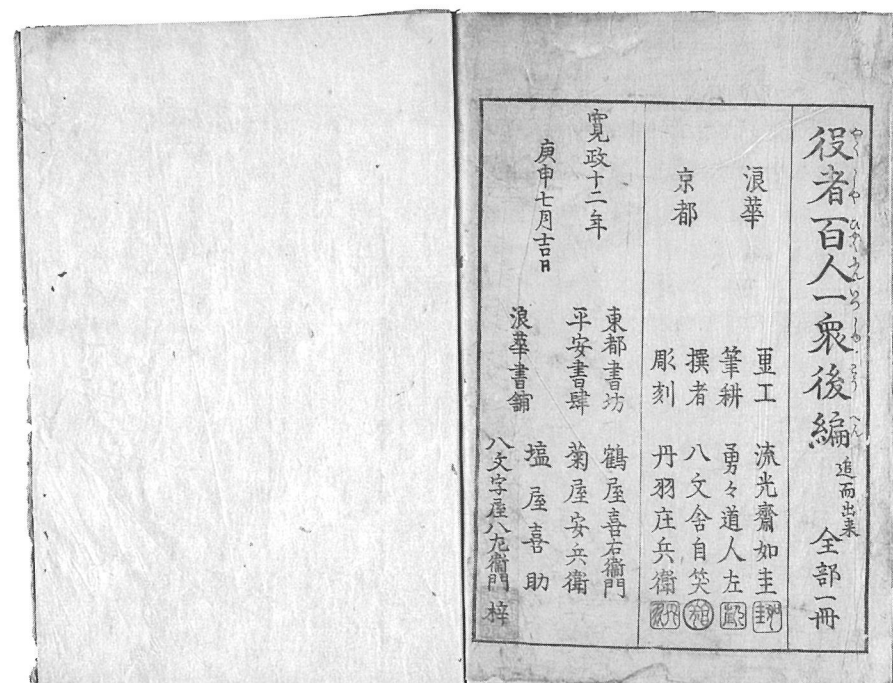 役者百人一衆後編 追而出来 全部一冊
やくしや ひやくにんいつしゆ こうへん
浪華
画工 流光齋如圭
筆耕 勇々道人左
京都
撰者 八文舎自笑
彫刻 丹羽庄兵衛
寛政十二年
庚申七月吉日
東都書坊 鶴屋喜右衛門
平安書肆 菊屋安兵衛
浪華書舗 塩屋喜助
八文字屋八左衛門 梓